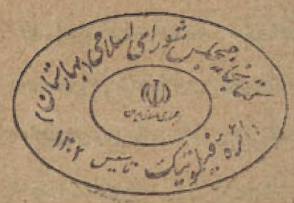 کتابخانه مجلس شورای اسلامی (بهارستان)
جمهوری اسلامی ایران
دایره فیلاتلیک تاسیس ۱۳۰۲